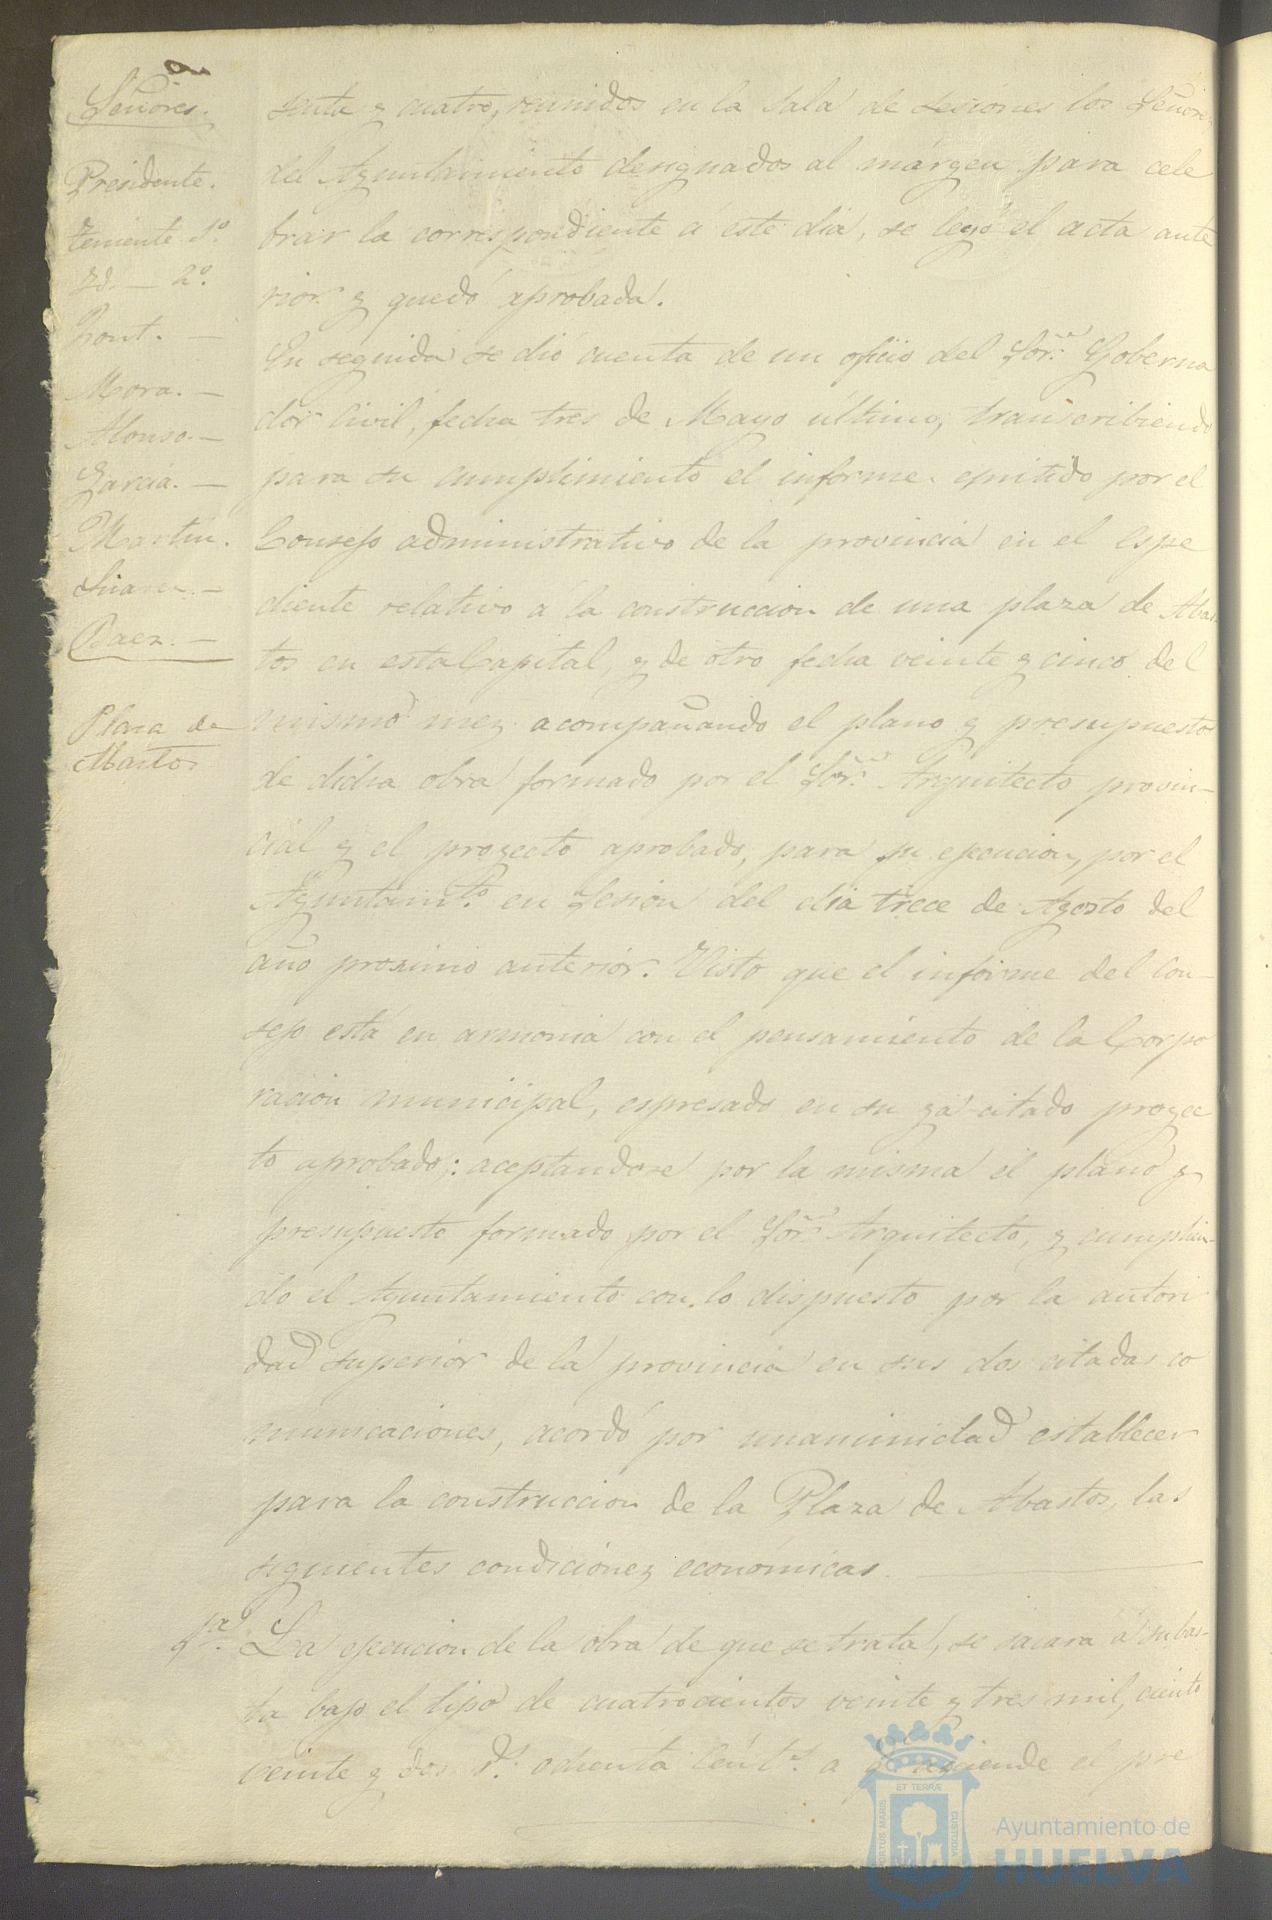 Señores.
Presidente.
Teniente 1º.
Yd. — 2º.
Mora. —
Alonso. —
García. —
Martín.
Suarez. —
Baez. —
Plaza de
Abastos
senta y cuatro, reunidos en la Sala de sesiones los Señores
del Ayuntamiento designados al márgen para cele
brar la correspondiente á este dia, se leyó el acta ante
rior y quedó aprobada.
En seguida se dió cuenta de un oficio del Sor. Goberna
dor Civil, fecha tres de Mayo último, transcribiendo
para su cumplimiento el informe emitido por el
Consejo administrativo de la provincia en el espe
diente relativo á la construccion de una plaza de Abas
tos en esta Capital, y de otro fecha veinte y cinco del
mismo mez acompañando el plano y presupuesto
de dicha obra formado por el Sor. Arquitecto provin-
cial y el proyecto aprobado, para su ejecucion, por el
Ayuntamto. en Sesion del dia trece de Agosto del
año procsimo anterior. Visto que el informe del Con-
sejo está en armonia con el pensamiento de la Corpo
racion municipal, espresado en su yá citado proyec
to aprobado; aceptandose por la misma el plano y
presupuesto formado por el Sor. Arquitecto, y cumplien-
do el Ayuntamiento con lo dispuesto por la autori
dad superior de la provincia en sus dos citadas co
municaciones, acordó por unanimidad establecer
para la construccion de la Plaza de Abastos, las
siguientes condiciónez económicas.
1ª. La ejecucion de la obra de que se trata, se sacara á subas-
ta bajo el tipo de cuatrocientos veinte y tres mil, ciento
veinte y dos rs. ochenta cénts. a qe. asciende el pre
PORTUS MARIS ET TERRÆ CUSTODIA
Ayuntamiento de
HUELVA